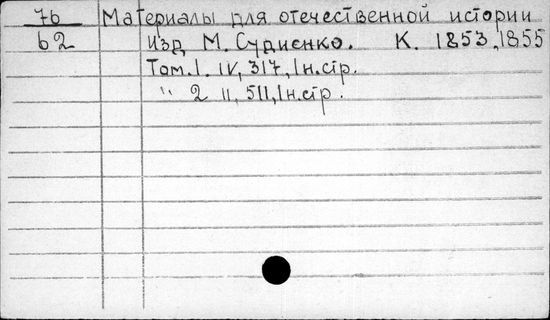 76 Материалы для отечественной истории
62 Изд М. Судиєнко. К. 1853, 1855
Том. I. IV, 317, 1 н. стр.
" 2 II, 511, 1 н. стр.